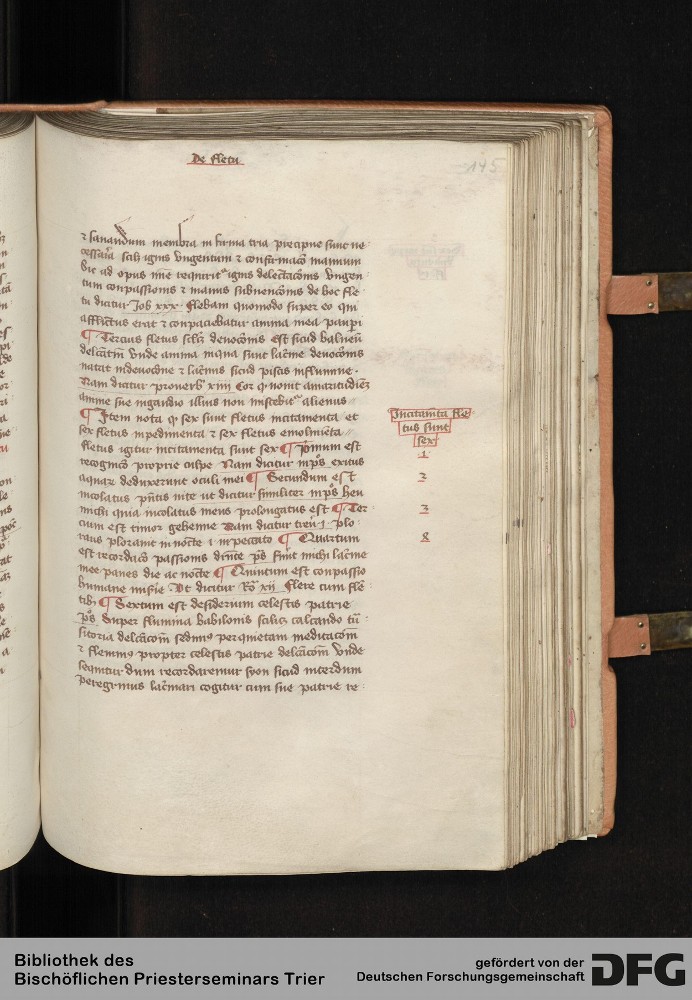 De fletu
145
⁊ sanandum membra infirma tria precipue sunt ne
cessaria scilꝫ ignis vngentum ⁊ confirmacō manuum
Sic ad opus requirit' ignis delectacōnis vngen
tum conpassionis ⁊ manus subuencōnis de hoc fle
tu dicitur Job xxx Flebam quondam super eo qui
afflictus erat ⁊ conpaciebatur anima mea paupi
¶ Tercius fletus scilꝫ deuocōnis est sicud balneū
delcātm̄ vnde anima in qua sunt lac̄me deuocōnis
natat in deuocōne ⁊ lac̄mis sicud piscis in flumine
Nam dicitur prouerb xiiii Cor q̄ nouit amaritudinēꝫ
anime sue in gaudio illius non miscebit' alienus
¶ Item nota q̄ sex sunt fletus incitamenta et
sex fletus inpedimenta ⁊ sex fletus emolimēta
fletus igitur incitamenta sunt sex ¶ Primum est
recognicō proprie culpe Nam dicitur in p̄s exitus
aquarꝫ deduxerunt oculi mei ¶ Secundum est
incolatus pn̄tis vite vt dicitur similiter in p̄s heu
michi quia incolatus meus prolongatus est ¶ Ter
cium est timor gehenne Nam dicitur treī 1 plo
rans plorauit in nocte i in peccato ¶ Quartum
est recordacō passionis diuīe p̄s fuīt michi lac̄me
mee panes die ac nocte ¶ Quintum est conpassio
humane misīe Vt dicitur Rō xii Flere cum fle
tibꝫ ¶ Sextum est desiderium celestis patrie
p̄s Super flumina babilonis scilicꝫ calcando trā
sitoria delcācōm̄ sedimꝰ per quietam meditacōm̄
⁊ flemimꝰ propter celestis patrie delcācōm̄ vnde
sequitur dum recordaremur syon sicud interdum
peregrinus lac̄mari cogitur cum sue patrie re
Incitamīta fle
tus sunt
sex
1
2
3
8
Bibliothek des
Bischöflichen Priesterseminars Trier
gefördert von der
Deutschen Forschungsgemeinschaft
DFG